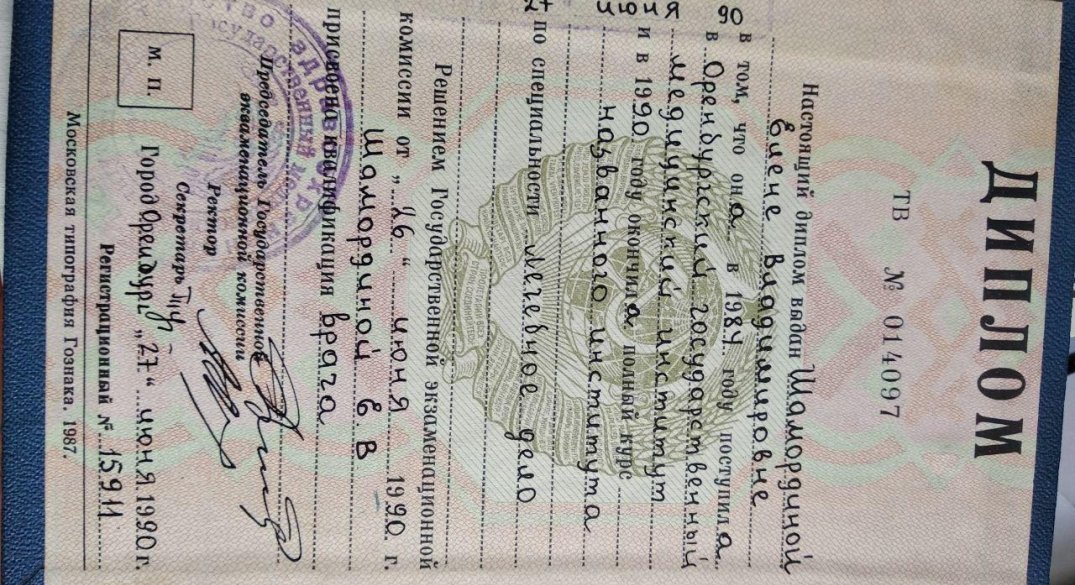 ДИПЛОМ
ТВ № 014097
Настоящий диплом выдан Шамординой
Елене Владимировне
в том, что она в 1984 году поступила
в Оренбургский государственный
медицинский институт
и в 1990 году окончила полный курс
названного института
по специальности лечебное дело
Решением Государственной экзаменационной
комиссии от „26“ июня 1990 г.
Шамординой Е. В
присвоена квалификация врача
Председатель Государственной
экзаменационной комиссии
Ректор
Секретарь
М. П.
Город Оренбург „27“ июня 1990 г.
Регистрационный № 15911
Московская типография Гознака. 1987.
27 июня 90